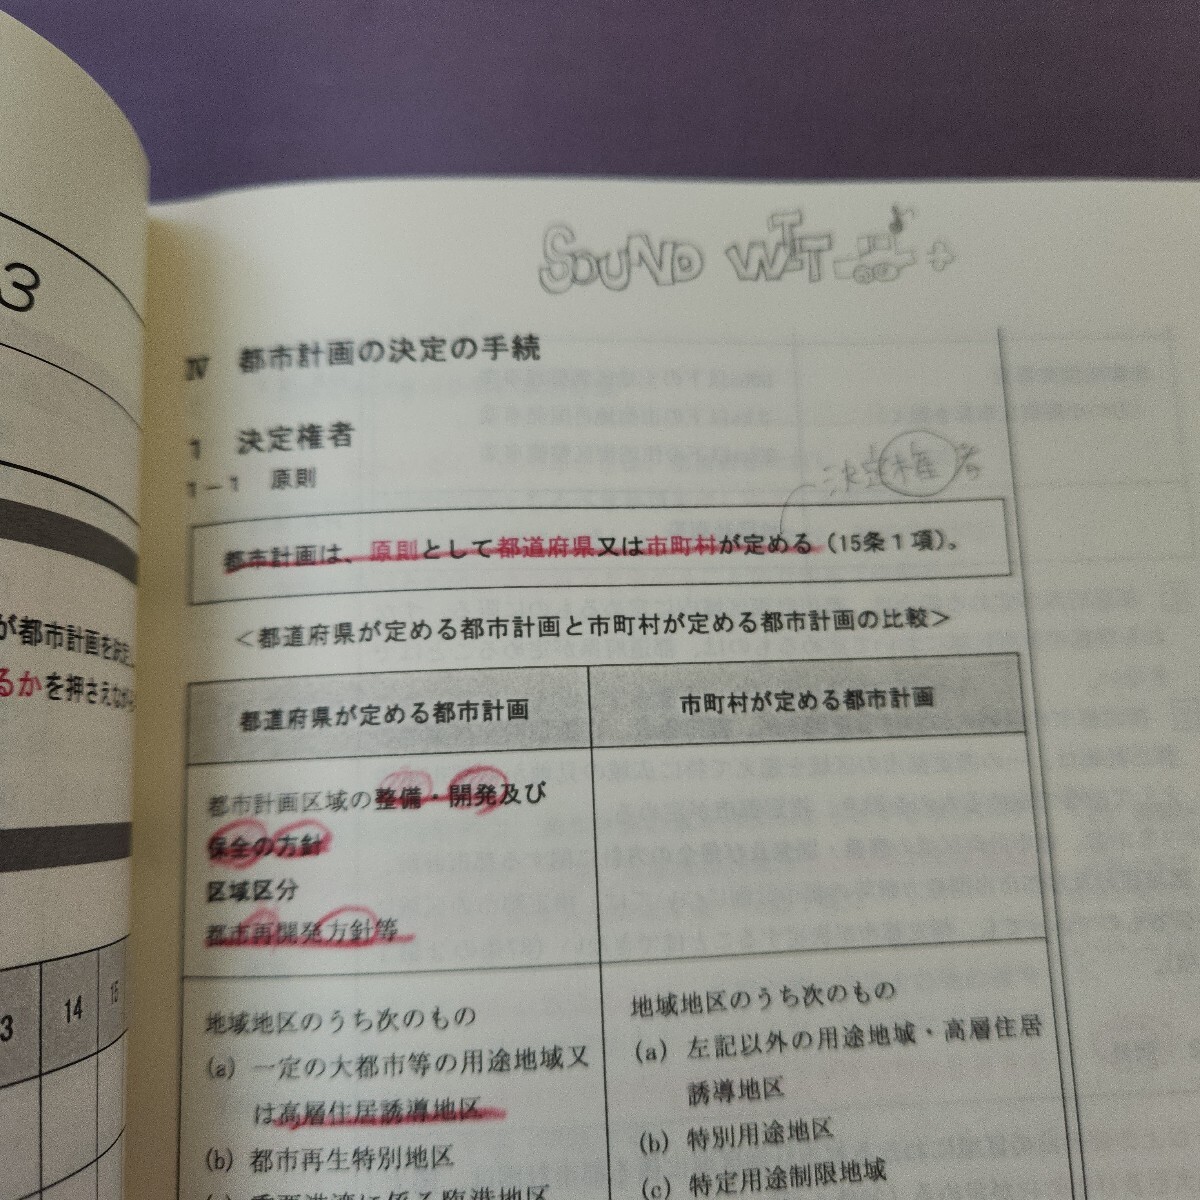 SOUND WIT
Ⅳ 都市計画の決定の手続
1 決定権者
1－1 原則
決定権者
都市計画は、原則として都道府県又は市町村が定める（15条１項）。
＜都道府県が定める都市計画と市町村が定める都市計画の比較＞
都道府県が定める都市計画
市町村が定める都市計画
都市計画区域の整備・開発及び
保全の方針
区域区分
都市再開発方針等
地域地区のうち次のもの
(a) 一定の大都市等の用途地域又
は高層住居誘導地区
(b) 都市再生特別地区
地域地区のうち次のもの
(a) 左記以外の用途地域・高層住居
誘導地区
(b) 特別用途地区
(c) 特定用途制限地域
3
が都市計画を決定
るかを押さえながら
3
14
15